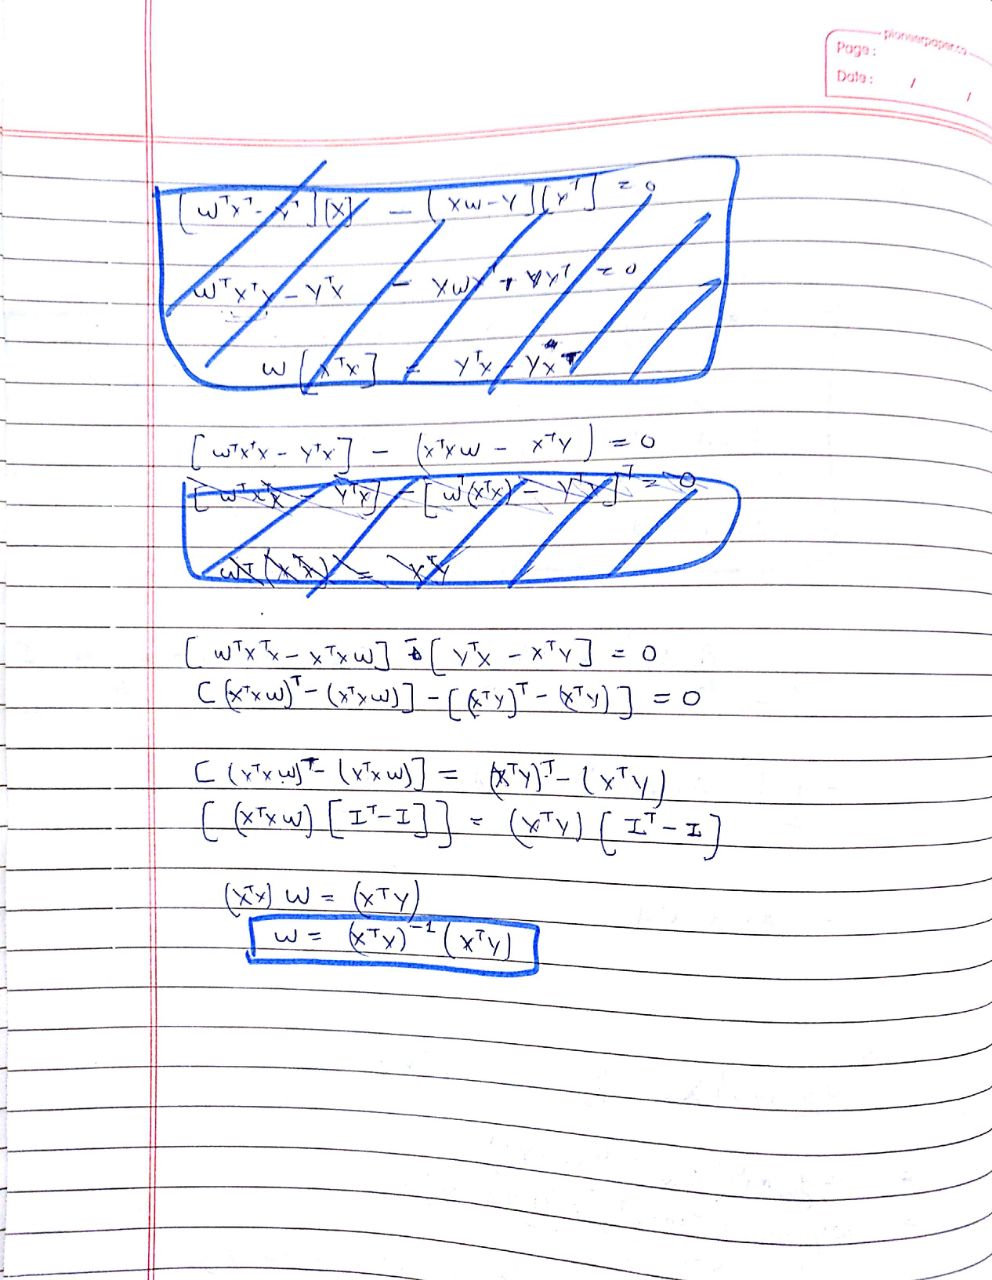 pioneerpaper.co
Page :
Date : / /
[wᵀxᵀ - yᵀ][x] - (xw - y][xᵀ] = 0
wᵀxᵀx - yᵀx - xwxᵀ + yxᵀ = 0
w [xᵀx] = yᵀx - yxᵀ
[wᵀxᵀx - yᵀx] - (xᵀxw - xᵀy) = 0
[wᵀxᵀx - yᵀx] - [wᵀ(xᵀx) - yᵀx]ᵀ = 0
wᵀ(xᵀx) = xᵀy
[wᵀxᵀx - xᵀxw] - [yᵀx - xᵀy] = 0
[(xᵀxw)ᵀ - (xᵀxw)] - [(xᵀy)ᵀ - (xᵀy)] = 0
[(xᵀxw)ᵀ - (xᵀxw)] = (xᵀy)ᵀ - (xᵀy)
[(xᵀxw) [Iᵀ - I]] = (xᵀy) [Iᵀ - I]
(xᵀx) w = (xᵀy)
w = (xᵀx)⁻¹ (xᵀy)